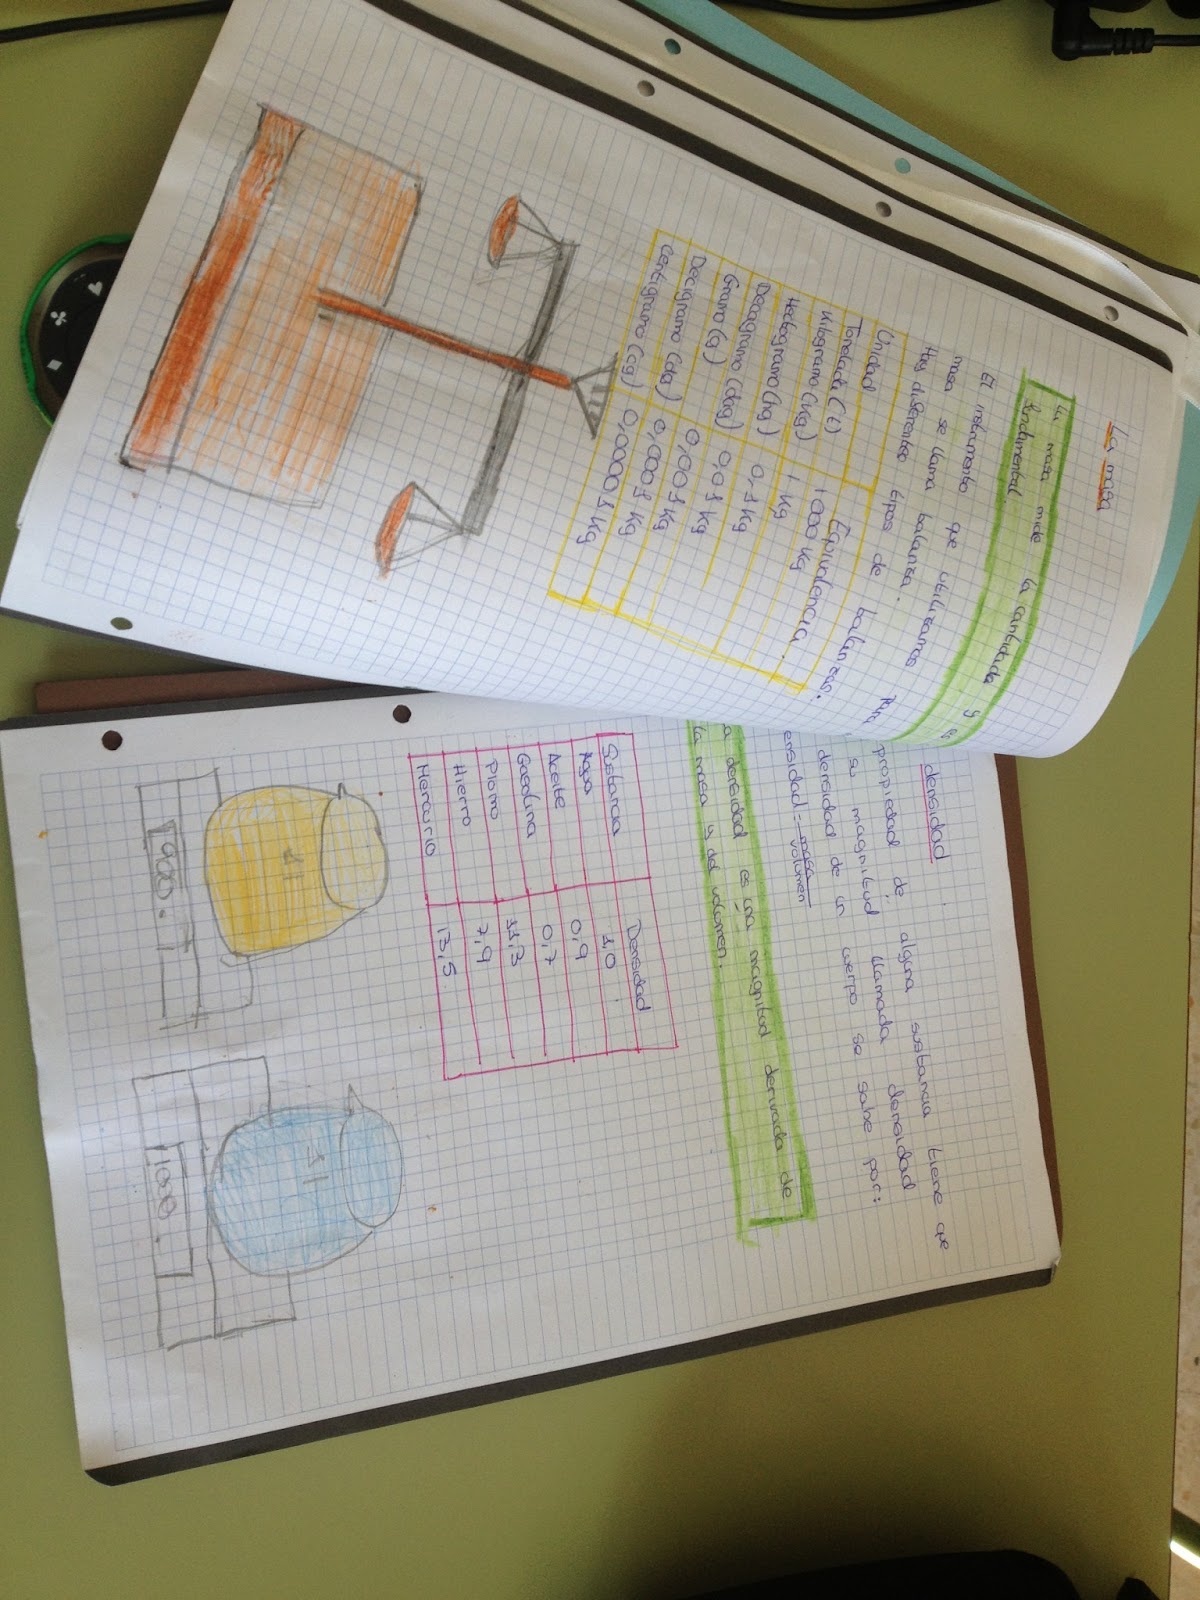 La masa
La masa mide la cantidada y es
fundamental.
El instrumento que utilizamos para
masa se llama balanza.
Hay diferentes tipos de balanzas:
Unidad Equivalencia.
Tonelada (t) 1000 Kg
Kilogramo (Kg) 1 Kg
Hectogramo (hg) 0,1 Kg
Decagramo (dag) 0,01 Kg
Gramo (g) 0,001 Kg
Decigramo (dg) 0,0001 Kg
Centigramo (cg) 0,00001 Kg
densidad.
propiedad de alguna sustancia tiene que
su magnitud llamada densidad
densidad de un cuerpo se sabe por:
ensidad = masa
volumen
a densidad es una magnitud derivada de
la masa y del volumen.
Sustancia Densidad
Agua 1,0
Aceite 0,9
Gasolina 0,7
Plomo 11,3
Hierro 7,9
Mercurio 13,5
1l
1l
900.
1000.